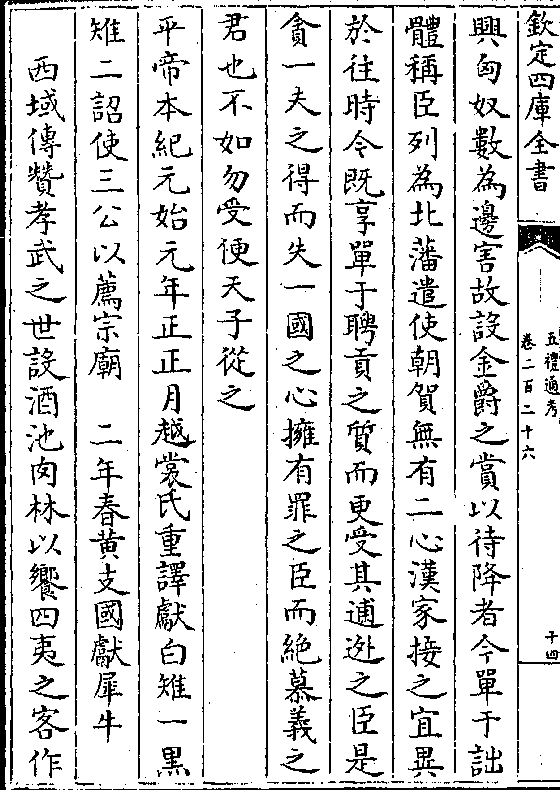 欽定四庫全書
五禮通考
卷二百二十六
十四
興匈奴數為邊害故設金爵之賞以待降者今單于詘
體稱臣列為北藩遣使朝賀無有二心漢家接之宜異
於往時今既享單于聘貢之質而更受其逋逃之臣是
貪一夫之得而失一國之心擁有罪之臣而絶慕義之
君也不如勿受便天子從之
平帝本紀元始元年正正月越裳氏重譯獻白雉一黑
雉二詔使三公以薦宗廟　二年春黄支國獻犀牛
西域傳贊孝武之世設酒池肉林以饗四夷之客作